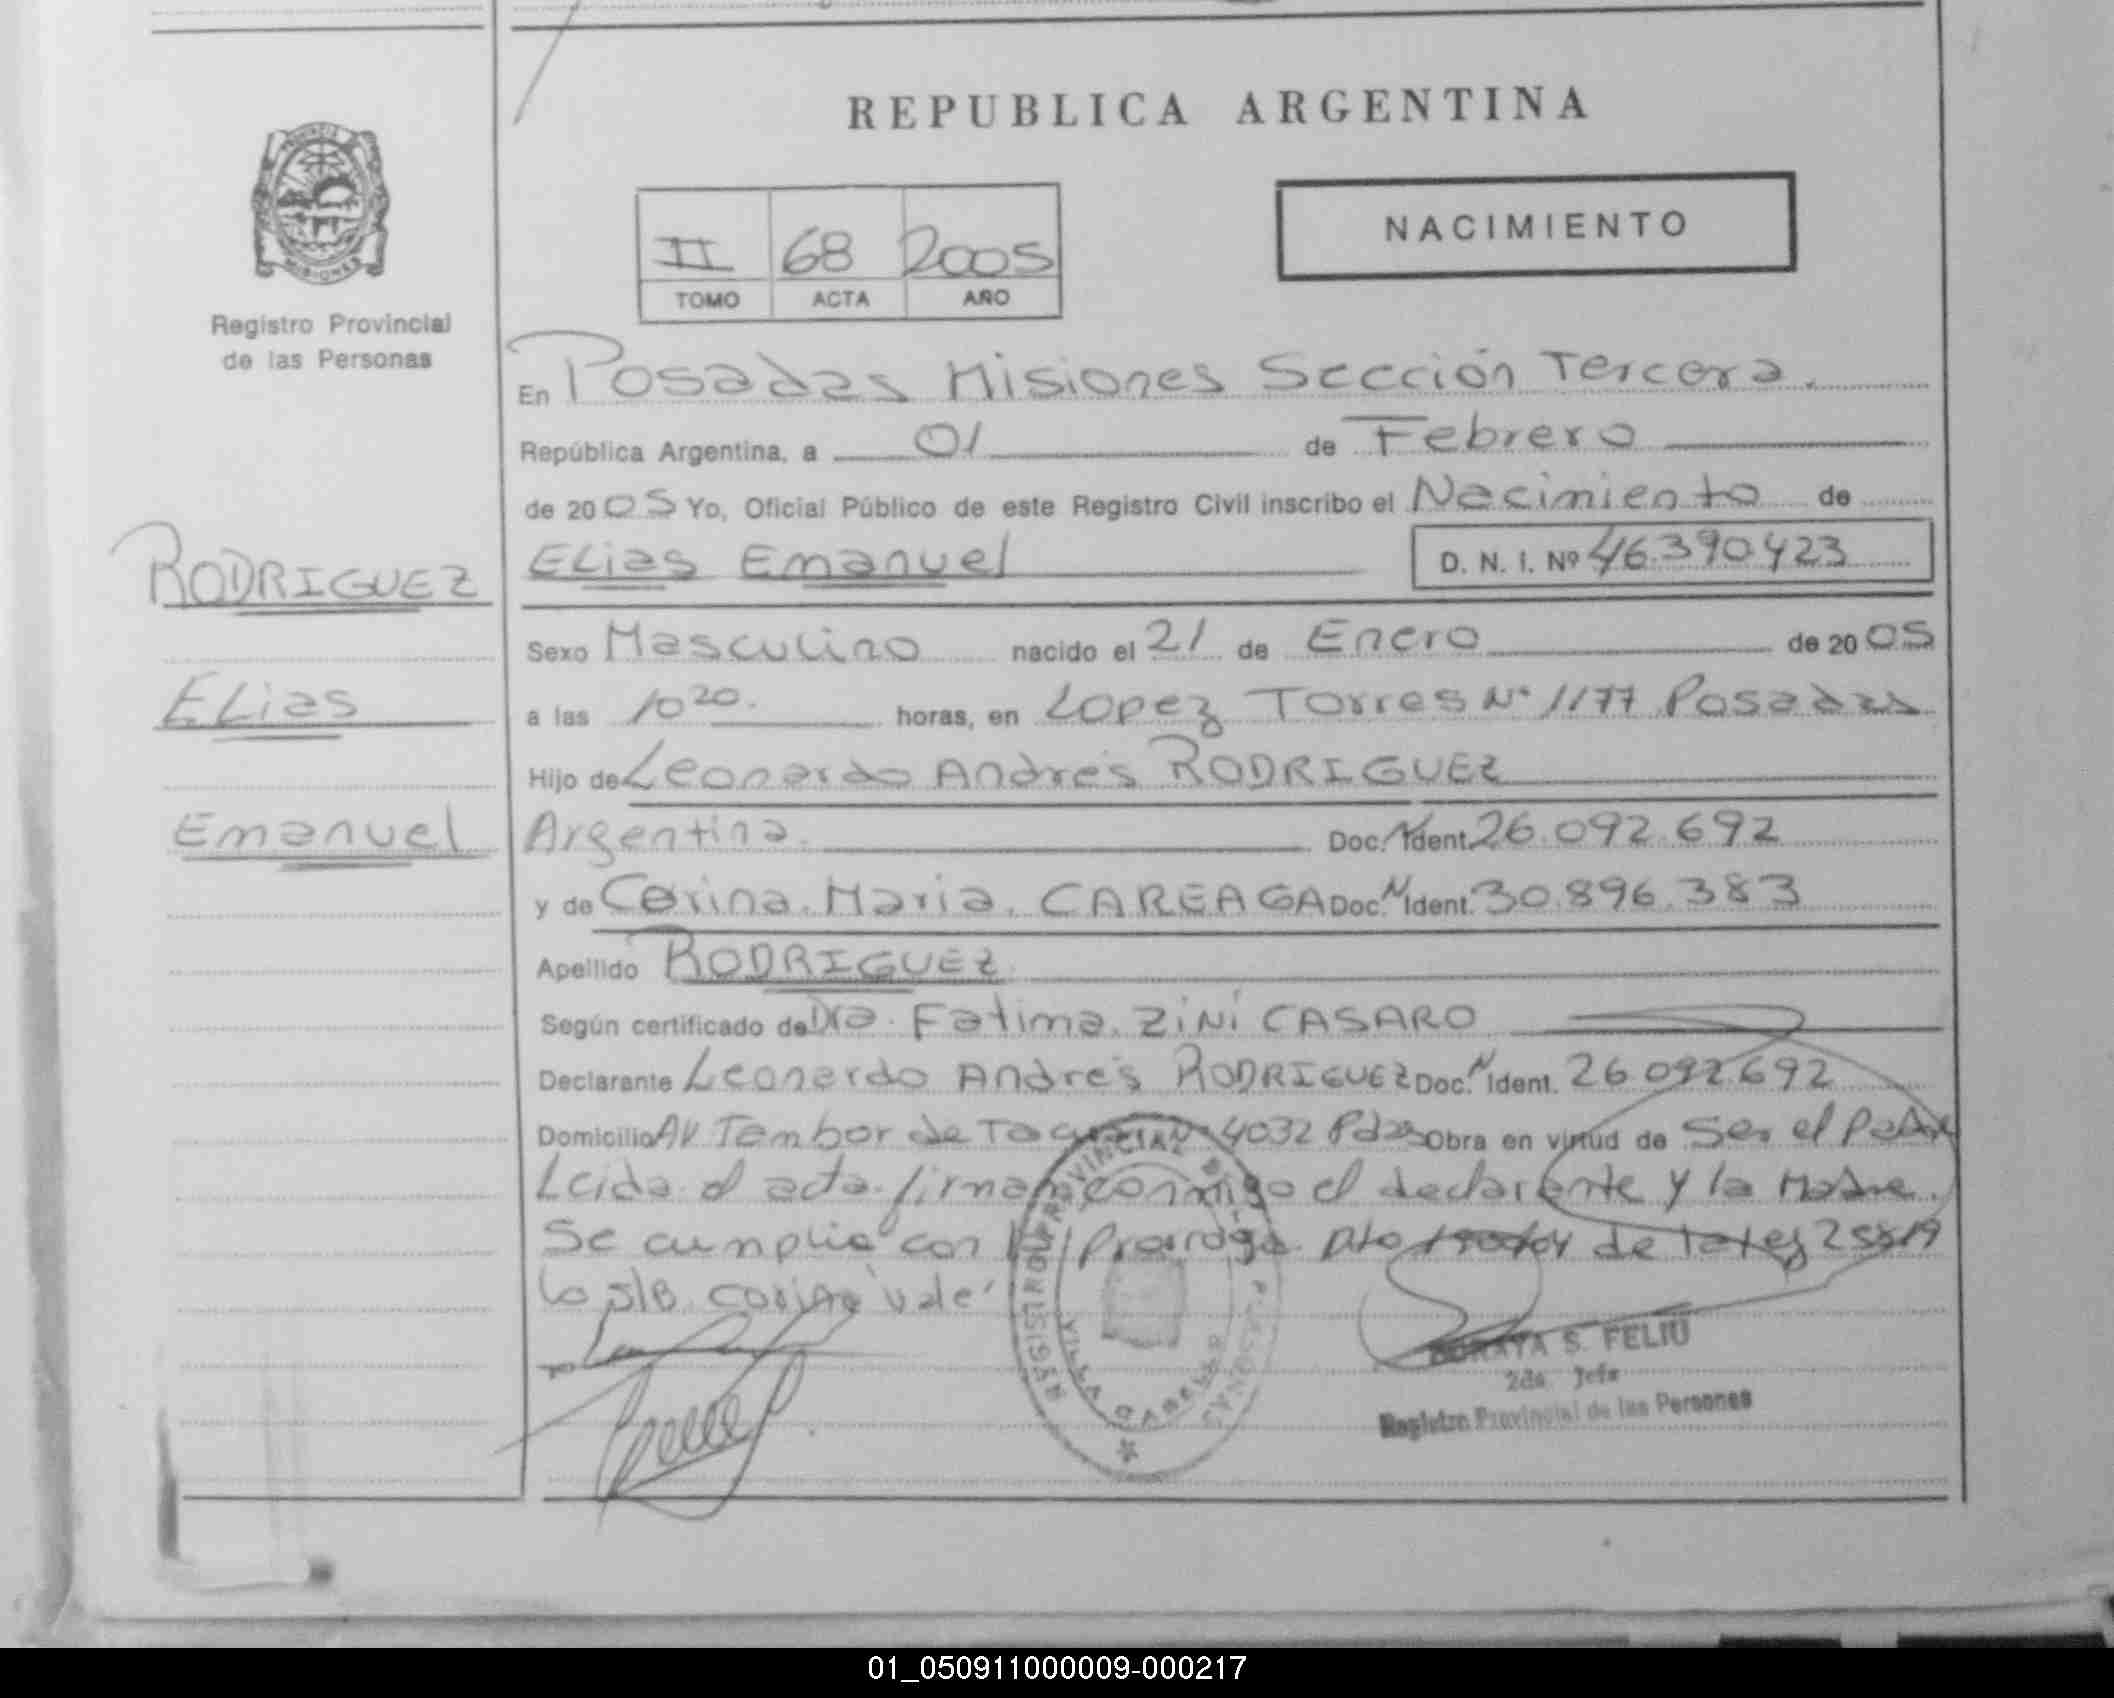 REPUBLICA ARGENTINA
PROVINCIA
MISIONES
Registro Provincial
de las Personas
II 68 2005
TOMO ACTA AÑO
NACIMIENTO
En Posadas Misiones Sección Tercera.
República Argentina, a 01 de Febrero
de 2005 Yo, Oficial Público de este Registro Civil inscribo el Nacimiento de
RODRIGUEZ
Elias
Emanuel
Elias Emanuel D. N. I. Nº 46.390.423
Sexo Masculino nacido el 21 de Enero de 2005
a las 10 20. horas, en Lopez Torres Nº 1177 Posadas
Hijo de Leonardo Andrés RODRIGUEZ
Argentina. Doc. N Ident. 26.092.692
y de Corina. Maria. CAREAGA Doc. N Ident. 30.896.383
Apellido RODRIGUEZ
Según certificado de Dra. Fatima. ZINI CASARO
Declarante Leonardo Andrés RODRIGUEZ Doc. N Ident. 26.092.692
Domicilio AV Tambor de 4032 Pdas Obra en virtud de Ser el Padre
Leida el acta firman conmigo el declarante y la Madre.
Se cumplio con Prorroga de
Lo S/B Corina vale
REGISTRO PROVINCIAL DE LAS PERSONAS
VILLA CABELLO
SORAYA S. FELIU
2da Jefa
Registro Provincial de las Personas
01_050911000009-000217